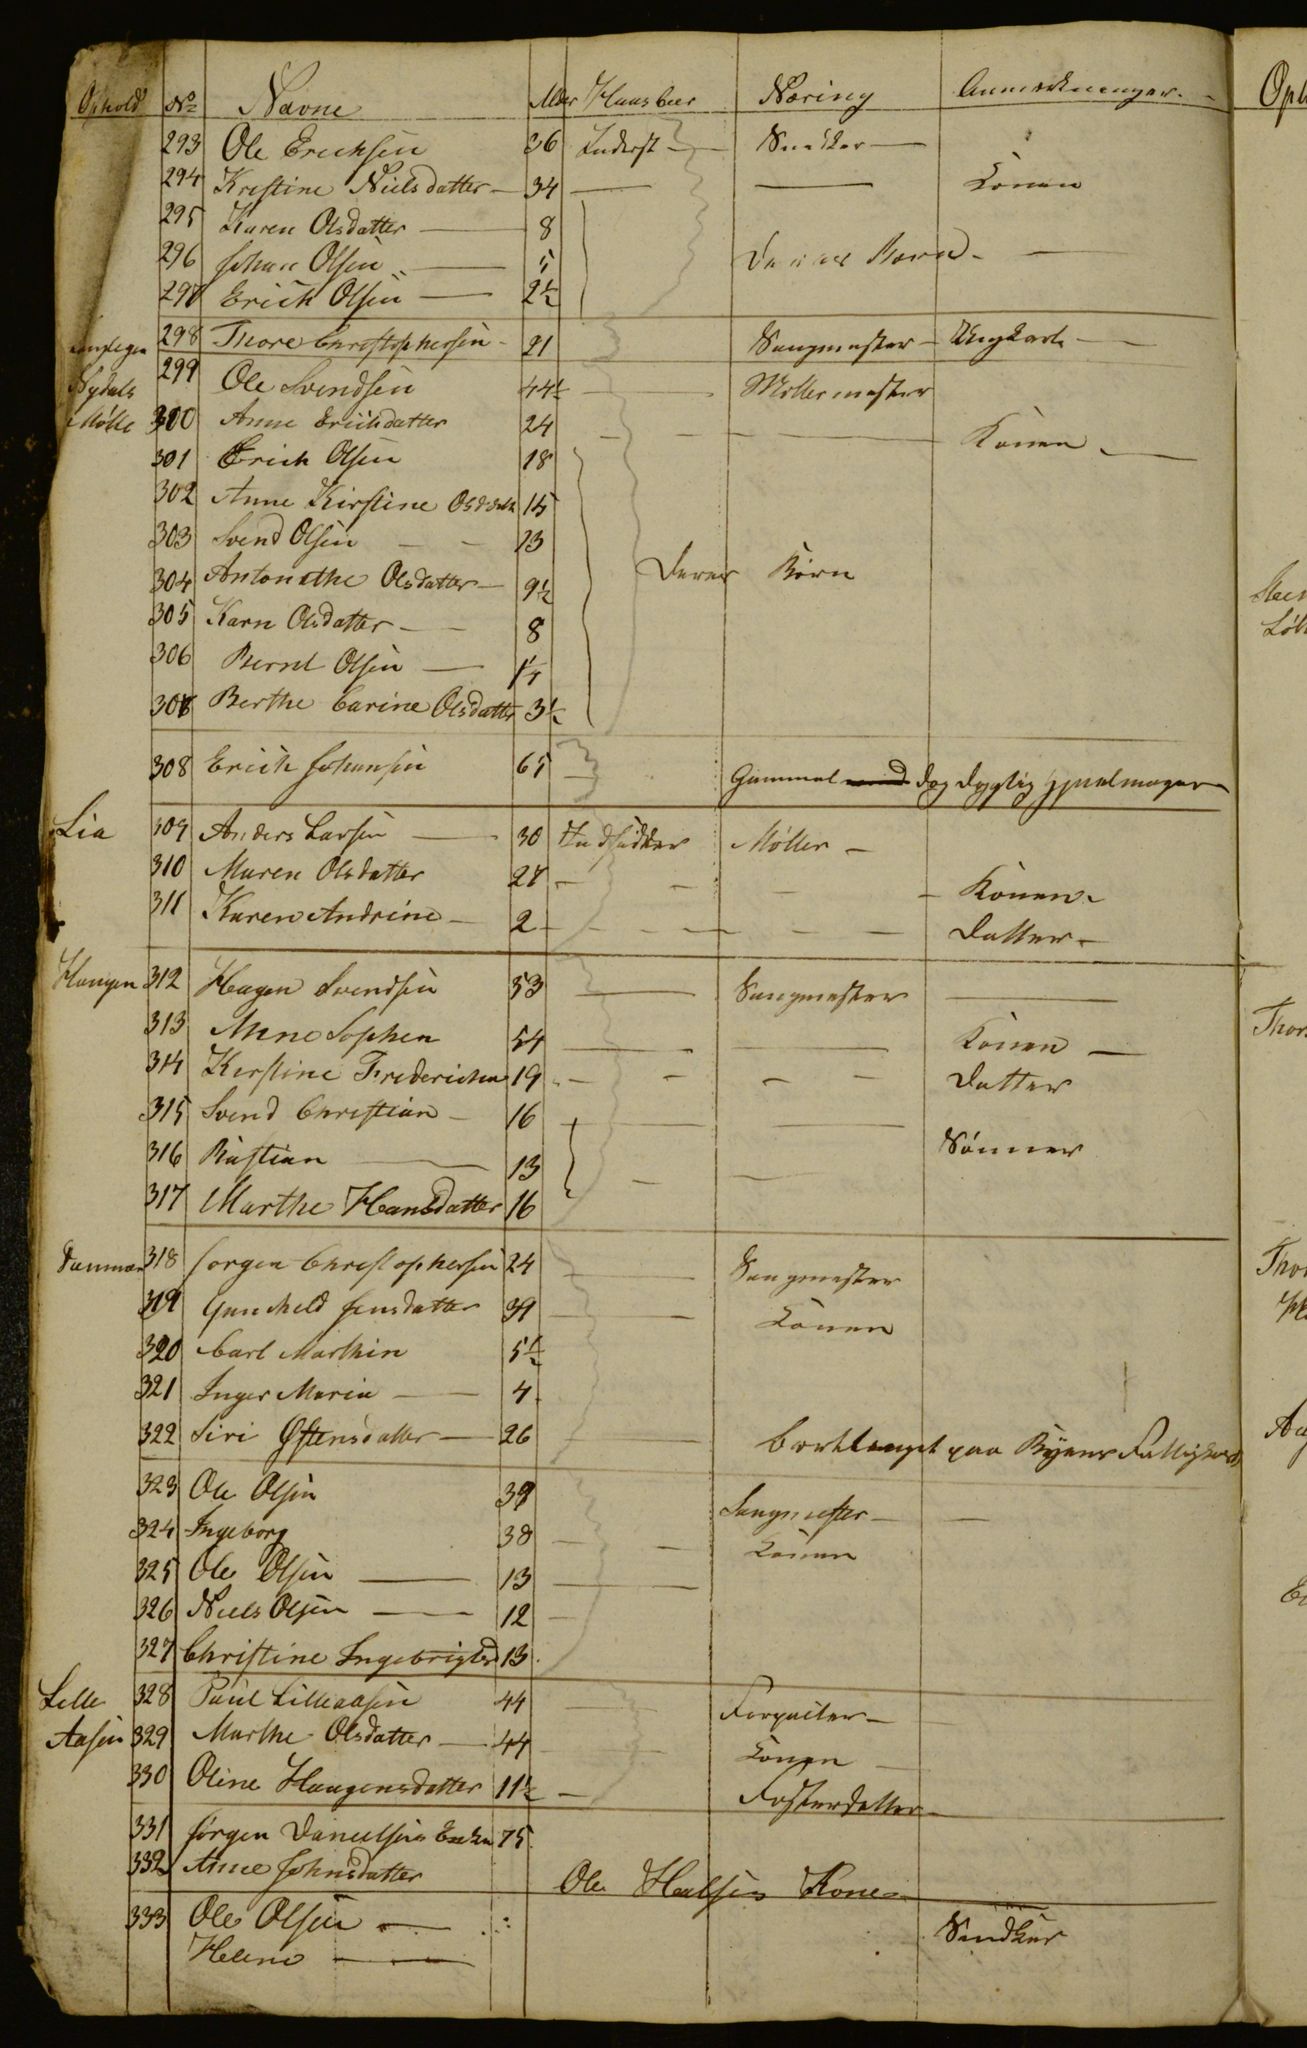 Ophold No Navne Alder Huusbeer Næring Anmerkninger.
293 Ole Erichsen 36 Inderst Sneiker
294 Kristine Nielsdatter 34 Konen
295 Karen Olsdatter 8
296 Johan Olsen 5 Deres Børn
297 Erich Olsen 2½
298 Thore Christophersen 21 Saugmester Ungkarl
299 Ole Svendsen 44½ Møllermester
Nydals
Mølle 300 Anne Erichsdatter 24 Konen
301 Erich Olsen 18
302 Anne Kirstine Olsdatt 15
303 Svend Olsen 13
304 Antonethe Olsdatter 9½ Deres Børn
305 Karn Olsdatter 8
306 Bernt Olsen
307 Berthe Carine Olsdatter 3½
308 Erich Johansen 65 Gammel dog dygtig Hjuulmager
Lia 309 Anders Larsen 30 Indsidder Møller
310 Maren Olsdatter 27 Konen
311 Karen Andrine 2 Datter
Haugen 312 Hagen Svendsen 53 Saugmester
313 Anne Sophen 54 Konen
314 Kirstine Frederichen 19 Datter
315 Svend Christian 16
316 Bastian 13 Sønner
317 Marthe Hansdatter 16
318 Jørgen Christophersen 24 Saugmester
319 Gunhild Jensdatter 39 Konen
320 Carl Marthin 5½
321 Inger Maria 4
322 Siri Østensdatter 26 Bortlenget paa Byens Fattigkasse
323 Ole Olsen 39 Saugmester
324 Ingeborg 38 Konen
325 Ole Olsen 13
326 Niels Olsen 12
327 Christine Ingebrigtsd 13
Lille 328 Paul Lilleaasen 44 Forpagter
Aasen 329 Marthe Olsdatter 44 Konen
330 Oline Haugensdatter 11½ Fosterdatter
331 Jørgen Danielsens Enke 75
332 Anne Johnsdatter Ole Halsens Kone
333 Ole Olsen
Helene
Opl
Thor